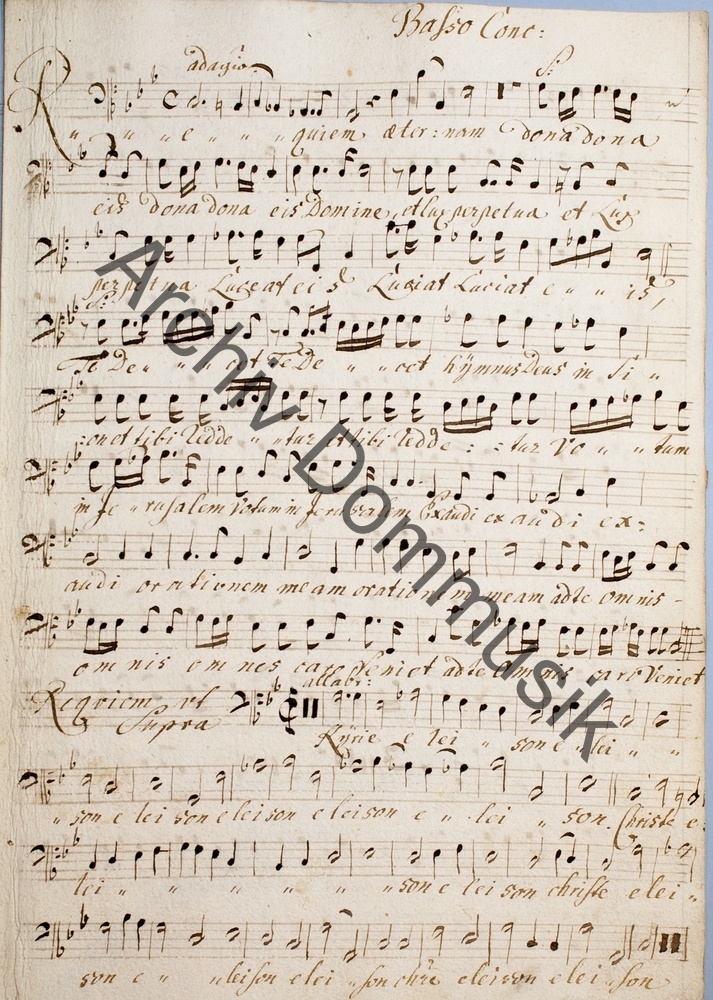 Basso Conc:
adagio
S:
R " " e " " " quiem æter: nam dona dona
eis dona dona eis Domine, et lux perpetua et Lux
perpetua Luceat eis Luciat Luciat e " " is,
S:
Te De " " " cet Te De " " cet hÿmnus Deus in Si "
:onet tibi Redde " " tur et tibi Redde : : tur Vo " " tum
in Je " rusalem Votum in Jerusalem Exaudi ex audi ex:
audi orationem meam orationem meam adte omnis -
omnis omnes caro Veniet adte omnis caro Veniet
allabr:
Requiem ut
Supra
Kÿrie e lei " son e " lei " "
" son e lei son eleison eleison e " lei " son. Christe e:
lei " " " " " " son e lei son christe elei "
son e " " leison elei " son chr̃e eleison elei " son
Archiv Dommusik